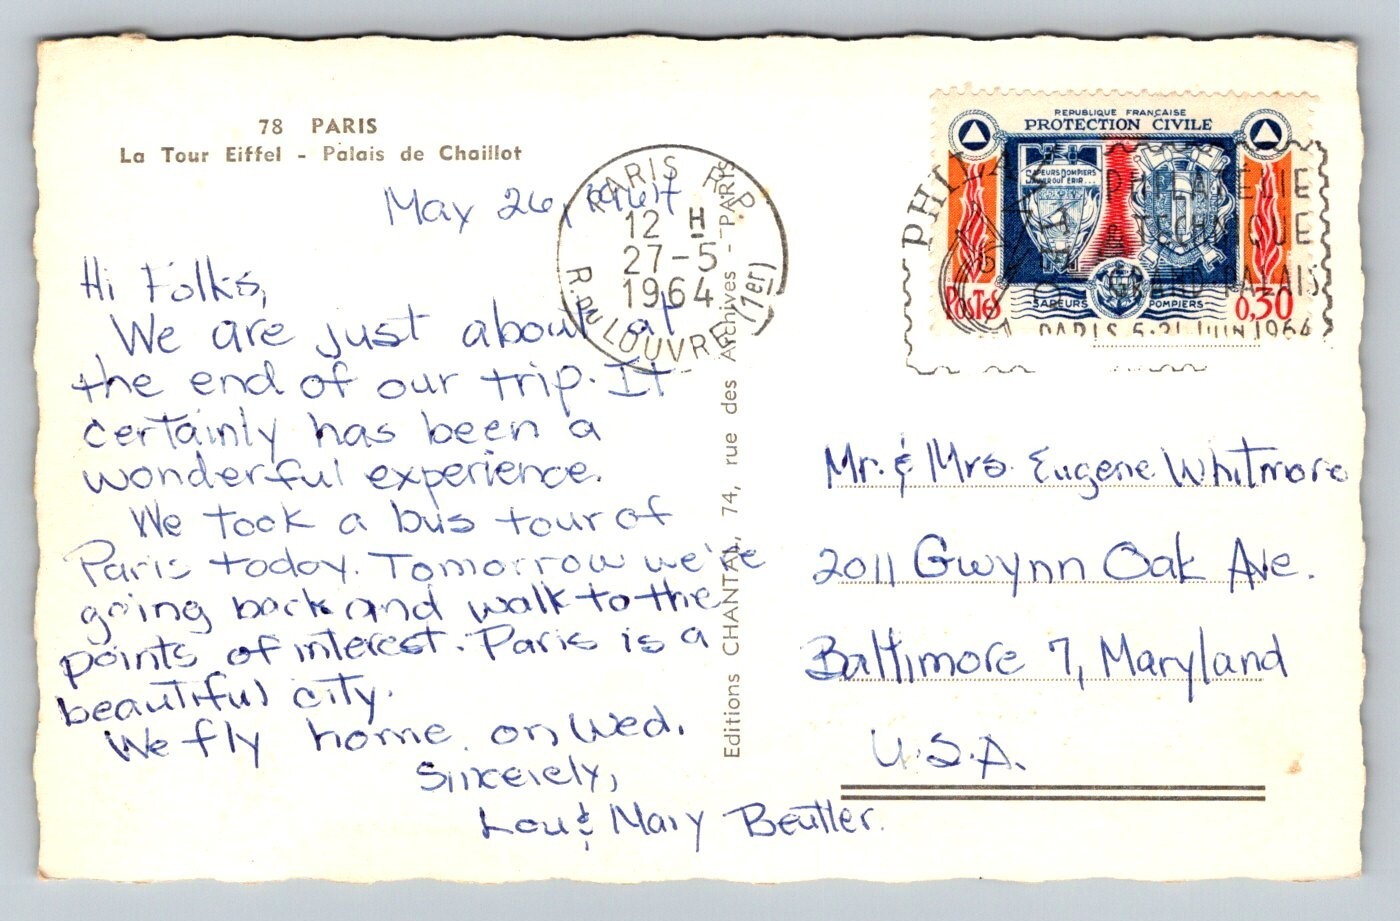 78 PARIS
La Tour Eiffel - Palais de Chaillot
May 26, 1964
Hi Folks,
We are just about at
the end of our trip. It
certainly has been a
wonderful experience.
We took a bus tour of
Paris today. Tomorrow we're
going back and walk to the
points of interest. Paris is a
beautiful city.
We fly home on Wed.
Sincerely,
Lou & Mary Beutler.
PARIS R.P.
12 H
27-5
1964
R. DU LOUVRE (1er)
Editions CHANTAL, 74, rue des Archives - PARIS
REPUBLIQUE FRANÇAISE
PROTECTION CIVILE
SAPEURS POMPIERS
SAUVER OU PERIR...
POSTES
SAPEURS POMPIERS
0,30
PHILATÉLIE
& TECHNIQUE
GRAND PALAIS
PARIS 5-21 JUIN 1964
Mr. & Mrs. Eugene Whitmore
2011 Gwynn Oak Ave.
Baltimore 7, Maryland
U.S.A.